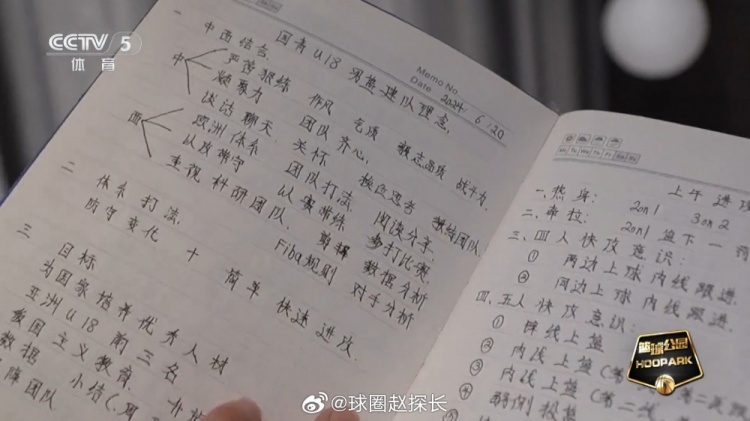 CCTV 5
体育
Memo No.
Date 2024 / 6 / 20
国青 U18 男篮建队理念.
一 中西结合.
中 严苛狠练 作风 气质 意志品质 战斗力.
凝聚力 团队齐心.
谈话聊天 关怀
西 欧洲体系 团队打法. 独立思考
以攻带守 以赛带练 阅读分享.
重视科研团队. 剪辑 多打比赛
Fiba规则 数据分析 对手分析
二 体系打法.
防守变化 + 简单 快速进攻.
三 目标
为国家培养优秀人材
亚洲U18前三名
爱国主义教育.
数据 小结(
团队
上午进攻
一、热身:
二、牵拉: 2on1 3on2
2on1 篮下一
三、四人快攻意识:
① 两边上球内线跟进.
② 同边上球内线跟进.
四、五人快攻意识:
①
② 内线上篮(第一
③ 内线上篮(第二
④ 弱侧
篮球公园
HOOPARK
@球圈赵探长